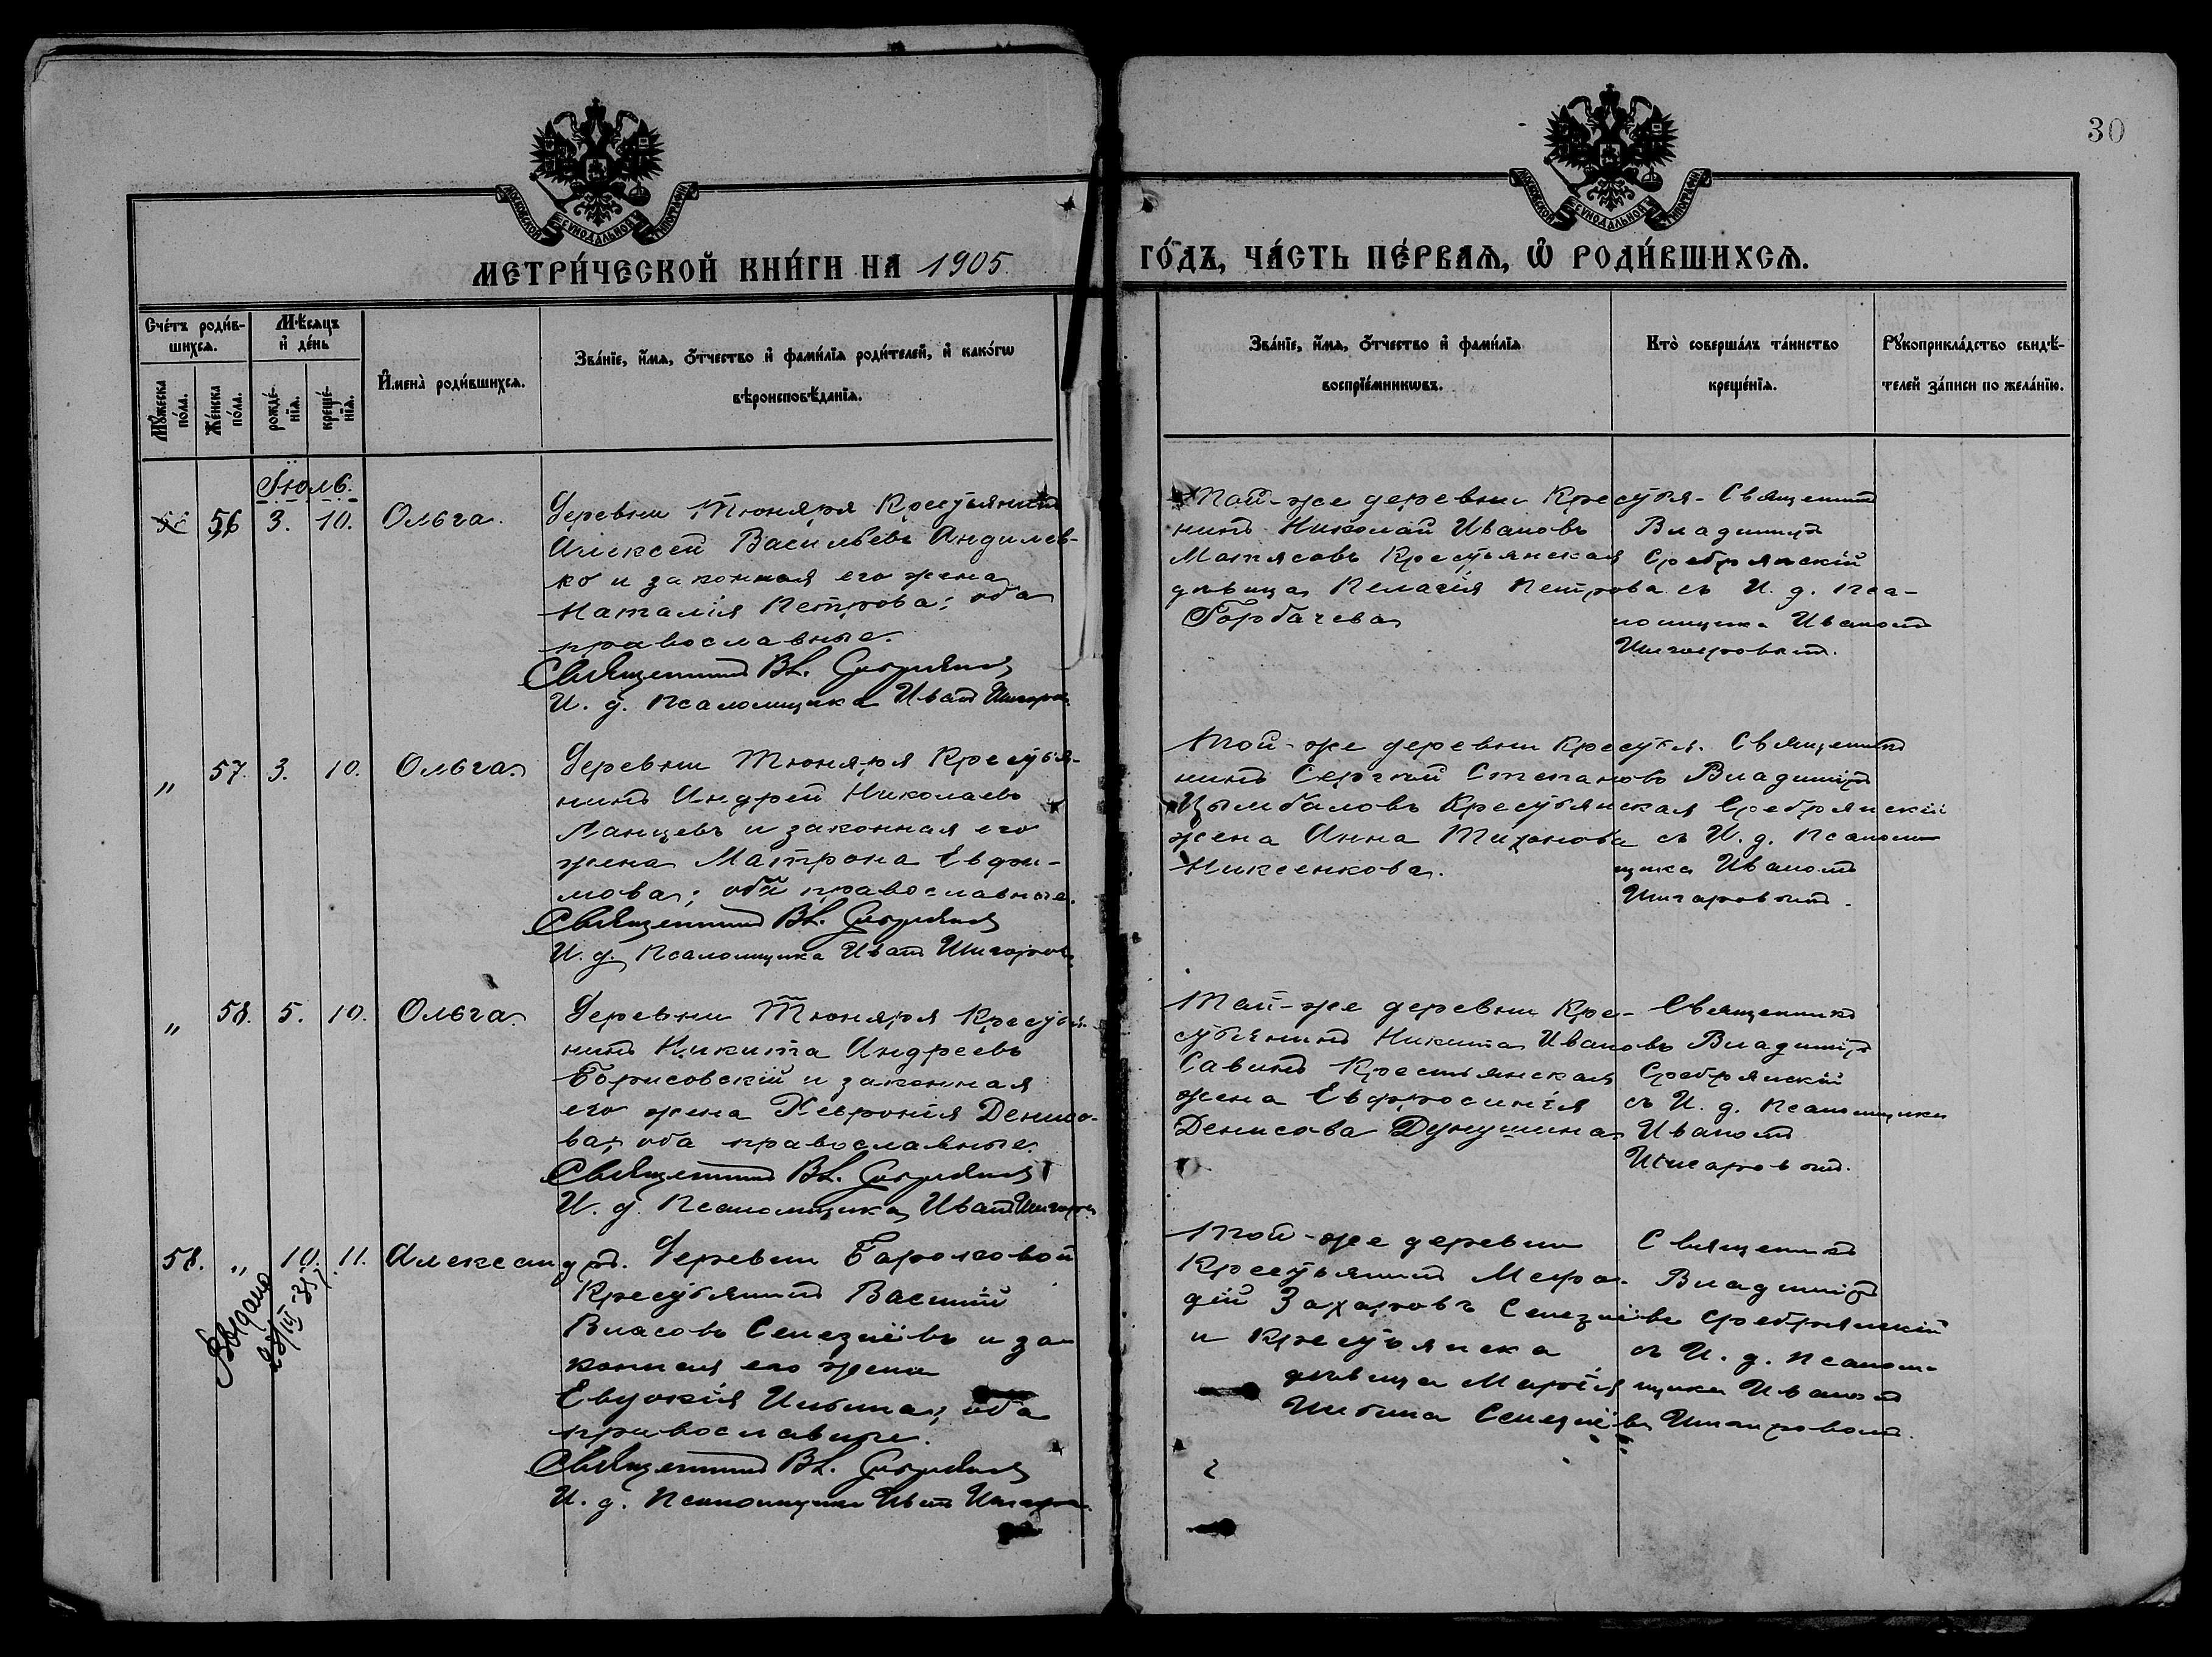 30
МОСКОВСКОЙ СѴНОДАЛЬНОЙ ТИПОГРАФІИ
МОСКОВСКОЙ СѴНОДАЛЬНОЙ ТИПОГРАФІИ
МЕТРИ́ЧЕСКОЙ КНИ́ГИ НА 1905
ГО́ДЪ, ЧА́СТЬ ПЕ́РВАѦ, Ѽ РОДИ́ВШИХСѦ.
Сче́тъ роди́в-
шихсѧ.
Мꙋ́жеска
по́ла.
Же́нска
по́ла.
Мѣ́сѧцъ
и҆ де́нь
рожде́-
нїѧ.
креще́-
нїѧ.
И҆мена̀ роди́вшихсѧ.
Зва́нїе, и҆́мѧ, ѻ҆́тчество и҆ фами́лїѧ роди́телей, и҆ како́гѡ
вѣроисповѣ́данїѧ.
Зва́нїе, и҆́мѧ, ѻ҆́тчество и҆ фами́лїѧ
воспрїе́мникѡвъ.
Кто̀ соверша́лъ та́инство
креще́нїѧ.
Рꙋкоприкла́дство свидѣ́-
телей за́писи по жела́нїю.
Іюль.
56 3. 10. Ольга.
Деревни Тюняря Крестьянинъ
Алексей Васильевъ Андилев-
ко и законная его жена
Наталія Петрова; оба
православные.
Священникъ Вл. Сребрянскій
И. д. Псаломщика Иванъ Шигоров
Той-же деревни Крестья-
нинъ Николай Ивановъ
Матясовъ Крестьянская
дѣвица Пелагія Петрова
Горбачева
Священникъ
Владиміръ
Сребрянскій
съ И. д. Пса-
ломщика Иваномъ
Шигоровымъ.
„ 57. 3. 10. Ольга.
Деревни Тюняря Крестья-
нинъ Андрей Николаевъ
Ланцевъ и законная его
жена Матрона Евфи-
мова; оба православные.
Священникъ Вл. Сребрянскій
И. д. Псаломщика Иванъ Шигоров
Той-же деревни Крестья-
нинъ Сергій Степановъ
Цымбаловъ Крестьянская
жена Анна Тихонова
Никсенкова.
Священникъ
Владиміръ
Сребрянскій
съ И. д. Псалом
щика Иваномъ
Шигоровымъ.
„ 58. 5. 10. Ольга.
Деревни Тюняря Крестья-
нинъ Никита Андреевъ
Борисовскій и законная
его жена Хеврония Денисо-
ва; оба православные.
Священникъ Вл. Сребрянскій
И. д. Псаломщика Иванъ Шигоров
Той-же деревни Кре-
стьянинъ Никита Ивановъ
Савинъ Крестьянская
жена Евфросинія
Денисова
Священникъ
Владиміръ
Сребрянскій
съ И. д. Псаломщика
Иваномъ
Шигоровымъ.
58. „ 10. 11. Александръ.
Выдано
Деревни
Крестьянинъ Василій
Власовъ Селезнёвъ и за-
конная его жена
Евдокія Ильина; оба
православные.
Священникъ Вл. Сребрянскій
И. д. Псаломщика Иванъ Шигоров
Той-же деревни
Крестьянинъ
Захаровъ Селезнёвъ
и Крестьянска
дѣвица Марія
Ильина Селезнёва
Священникъ
Владиміръ
Сребрянскій
съ И. д. Псалом-
щика Иваномъ
Шигоровымъ.